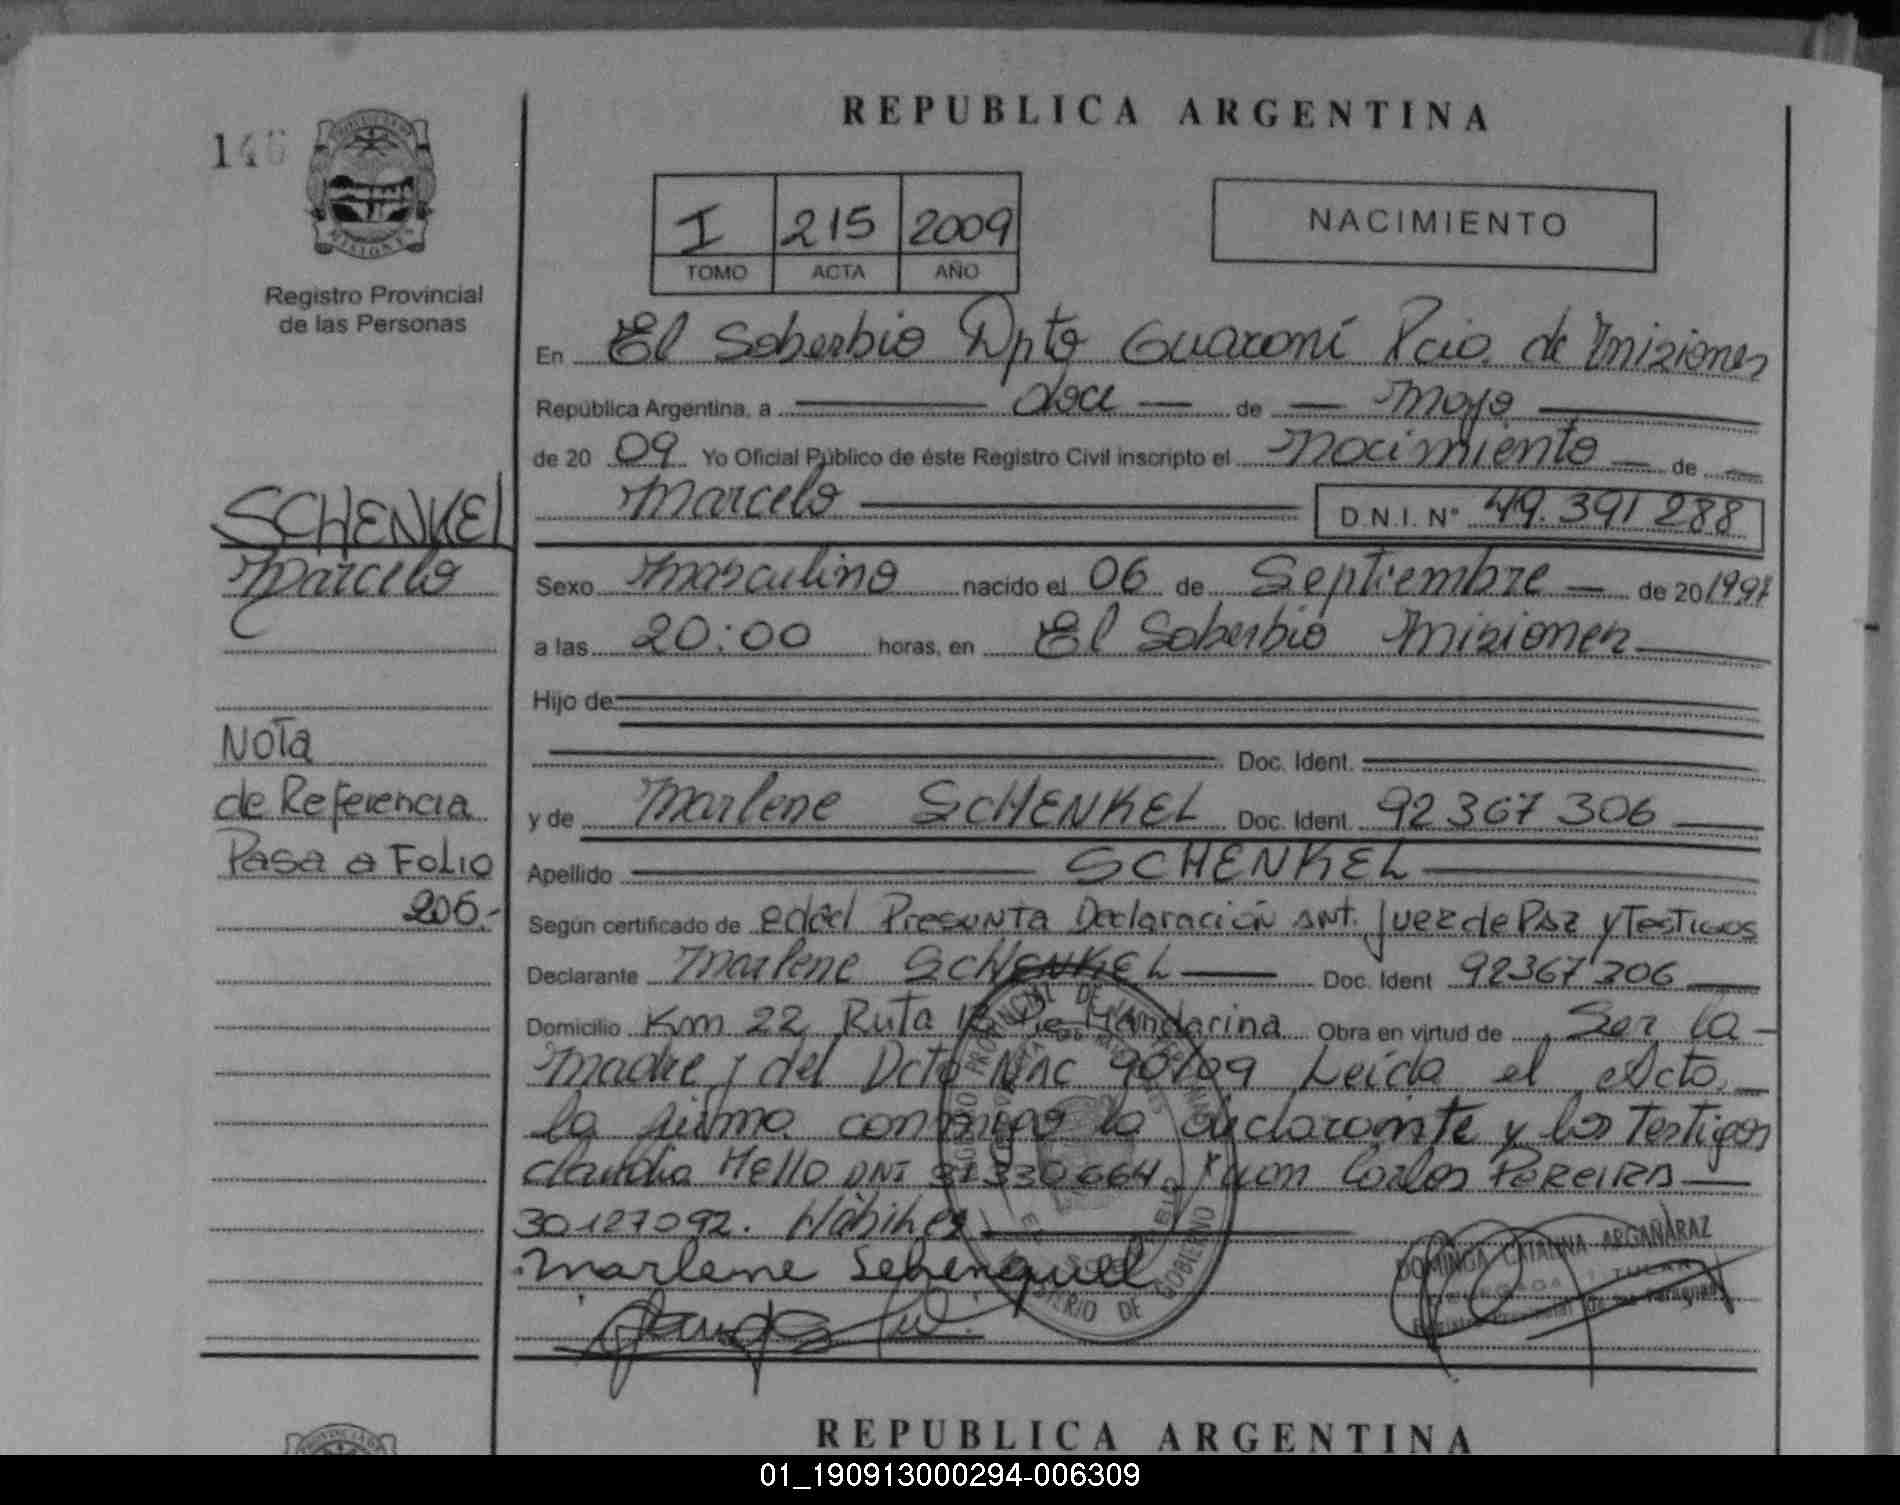 REPUBLICA ARGENTINA
146
I 215 2009
TOMO ACTA AÑO
NACIMIENTO
Registro Provincial
de las Personas
En El Soberbio Dpto Guaraní Pcia. de Misiones
República Argentina, a doce de Mayo
de 20 09 Yo Oficial Público de éste Registro Civil inscripto el Nacimiento de
Marcelo D.N.I. N° 49.391 288
SCHENKEL
Marcelo
Sexo Masculino nacido el 06 de Septiembre de 20 1997
a las 20:00 horas, en El Soberbio Misiones
Hijo de
Doc. Ident.
Nota
de Referencia
Pasa a Folio
206.-
y de Marlene SCHENKEL Doc. Ident. 92 367 306
Apellido SCHENKEL
Según certificado de edad Presunta Declaración ant. Juez de Paz y Testigos
Declarante Marlene SCHENKEL Doc. Ident 92367306
Domicilio Km 22 Ruta Mandarina Obra en virtud de Ser la
madre y del Dcto Nac 90/09 Leída el Acta
la firma conmigo la declarante y los Testigos
Claudia Mello DNI 31330664 Juan Carlos PEREIRA
30127092. Hábiles
Marlene Schenquel
DOMINGA CATALINA ARGAÑARAZ
MINISTERIO DE GOBIERNO
REPUBLICA ARGENTINA
01_190913000294-006309